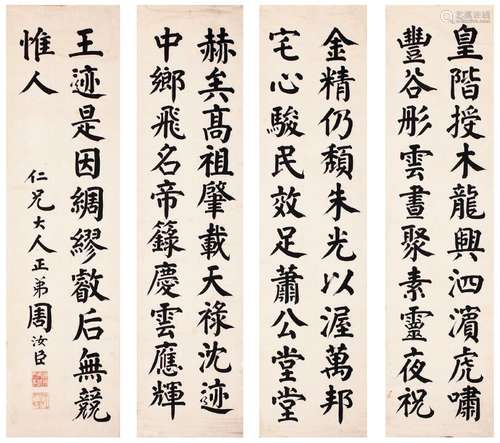 皇階授木龍興泗濱虎嘯
豐谷彤雲晝聚素靈夜祝
金精仍頽朱光以渥萬邦
宅心駿民效足蕭公堂堂
赫矣高祖肇載天祿沈迹
中鄉飛名帝籙慶雲應輝
王迹是因綢繆叡后無競
惟人
仁兄大人正弟周汝臣